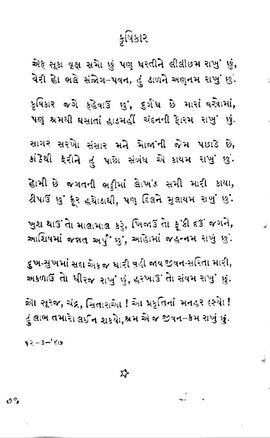 કૃષિકાર
એક સૂકા વૃક્ષ સમો છું પણ ધરતીને લીલીછમ રાખું છું,
વેરી હો ભલે સંજોગ-પવન, હું ડાળને અણનમ રાખું છું.
કૃષિકાર જગે કહેવાઉં છું, દુર્ગંધ છે મારાં વસ્ત્રોમાં,
પણ શ્રમથી ઘસાતાં હાડમહીં ચંદનની ફોરમ રાખું છું.
સાગર સરખો સંસાર મને મોજાંની જેમ પછાડે છે,
કાંઠેથી ફરીને હું પાછો સંબંધ એ કાયમ રાખું છું.
હોમી છે જગતની ભઠ્ઠીમાં લોખંડ સમી મારી કાયા,
ટીપાઉં છું ક્રૂર હથોડાથી, પણ દિલને મુલાયમ રાખું છું.
ખુશ થાઉં તો માલામાલ કરું, ખિજાઉં તો ફૂંકી દઉં જગને,
આશિષમાં જન્નત અર્પું છું, આહોમાં જહન્નમ રાખું છું.
દુઃખ-સુખમાં સદા એકજ ધારી વહી જાય જીવન-સરિતા મારી,
અકળાઉં તો ધીરજ રાખું છું, હરખાઉં તો સંયમ રાખું છું.
ઓ સૂરજ, ચંદ્ર, સિતારાઓ ! ઓ પ્રકૃતિનાં મનહર દૃશ્યો !
હું લાભ તમારો લઈ ન શકયો, શ્રમ એ જ જીવન-ક્રમ રાખું છું.
૧૨-૩-'૪૭